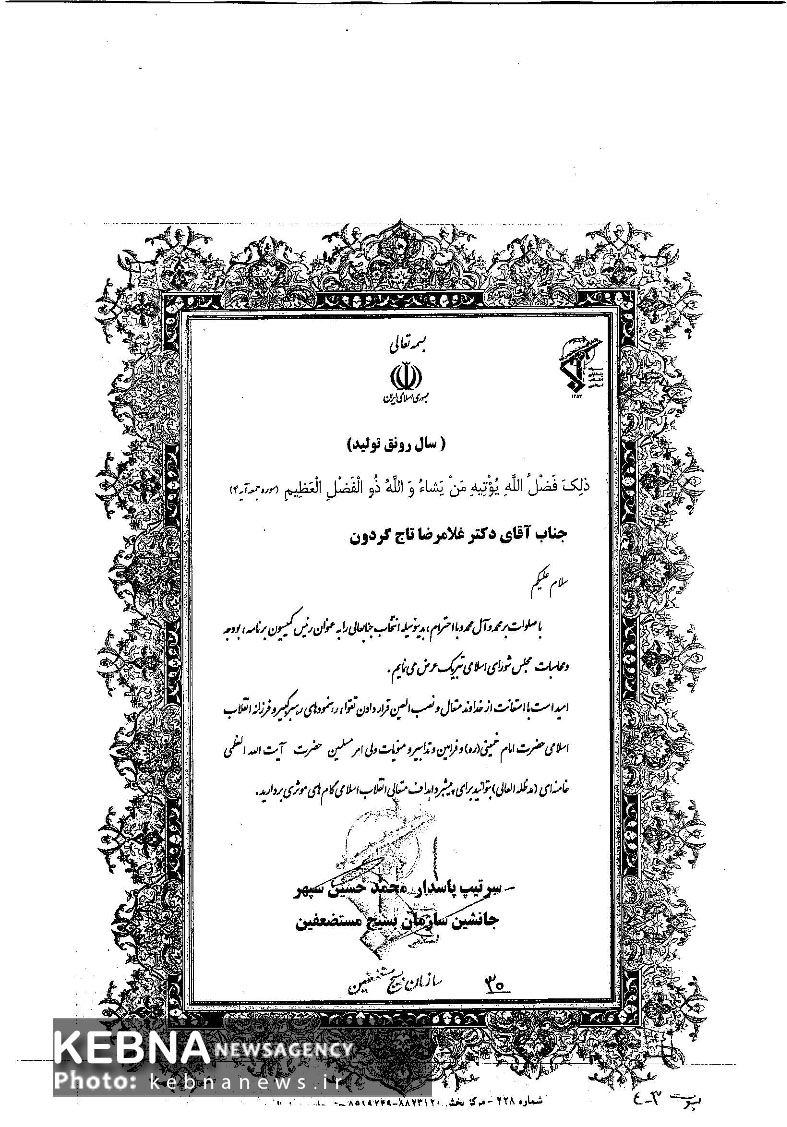 بسمه تعالی
جمهوری اسلامی ایران
( سال رونق تولید)
ذلِکَ فَضْلُ اللَّهِ یُؤْتِیهِ مَنْ یَشاءُ وَ اللَّهُ ذُو الْفَضْلِ الْعَظِیمِ (سوره جمعه آیه ۴)
جناب آقای دکتر غلامرضا تاج گردون
سلام علیکم
با صلوات بر محمد و آل محمد و با احترام، بدینوسیله انتخاب جنابعالی را به عنوان رئیس کمیسیون برنامه، بودجه
و محاسبات مجلس شورای اسلامی تبریک عرض می نمایم.
امید است با استعانت از خداوند متعال و نصب العین قرار دادن تقوا، رهنمودهای رهبر کبیر و فرزانه انقلاب
اسلامی حضرت امام خمینی(ره) و فرامین و تدابیر و منویات ولی امر مسلمین حضرت آیت الله العظمی
خامنه‌ای (مدظله العالی) بتوانید برای پیشبرد اهداف متعالی انقلاب اسلامی گام های موثری بردارید.
سرتیپ پاسدار محمد حسین سپهر
جانشین سازمان بسیج مستضعفین
سازمان بسیج مستضعفین
۳۰
KEBNA NEWSAGENCY
Photo: kebnanews.ir
شماره ۲۲۸ - مرکز پخش
پیوست ۳-۴